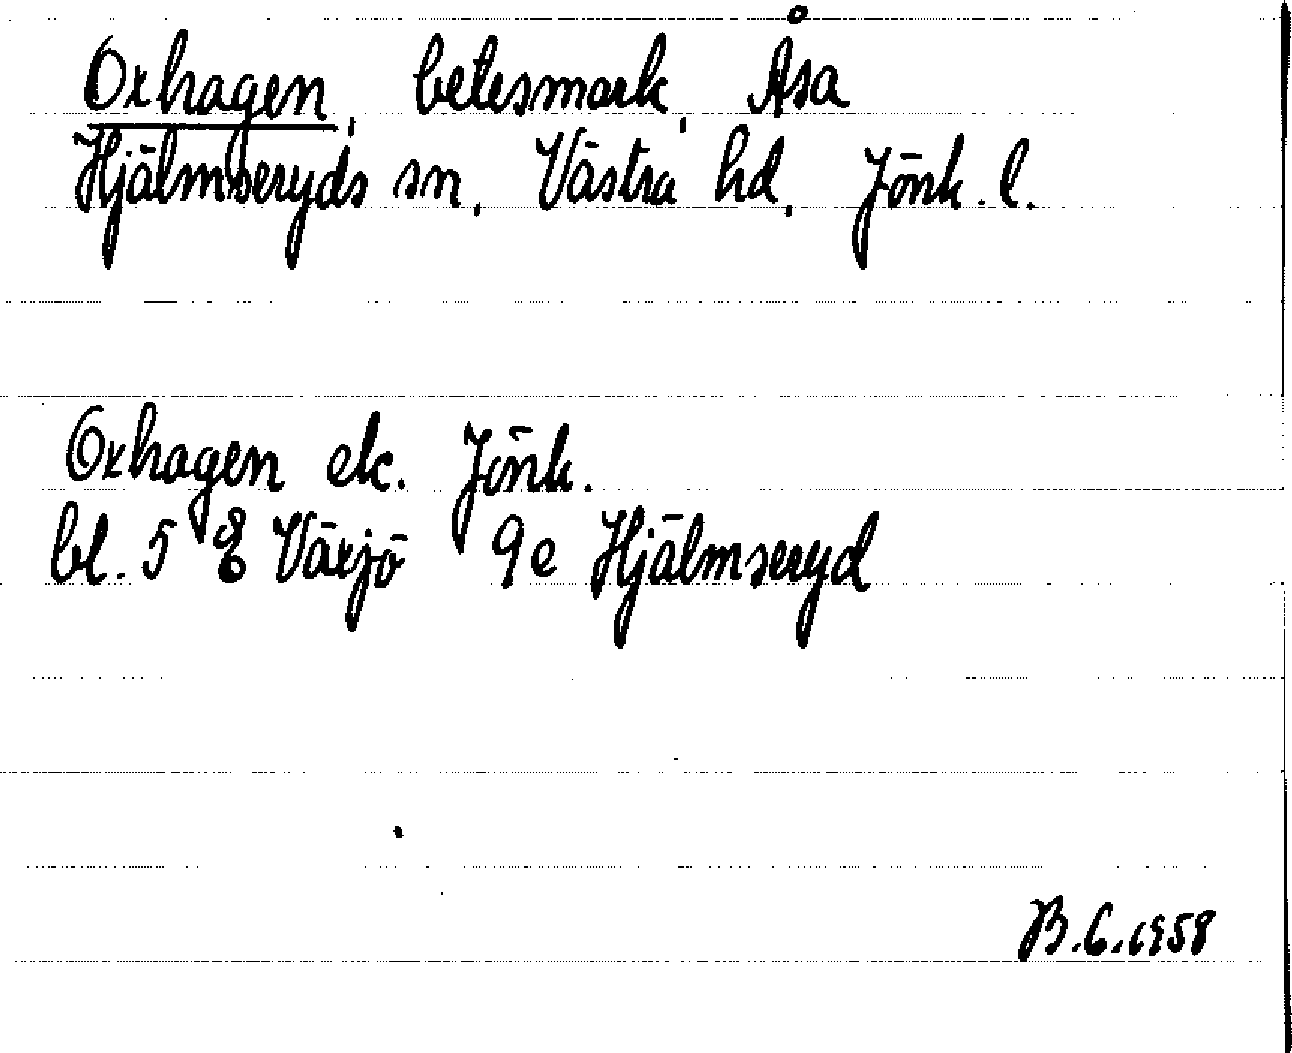 Oxhagen, betesmark, Åsa
Hjälmseryds sn, Västra hd, Jönk. l.
Oxhagen ek. Jönk.
bl. 5 E Växjö 9e Hjälmseryd
B.G. 1958